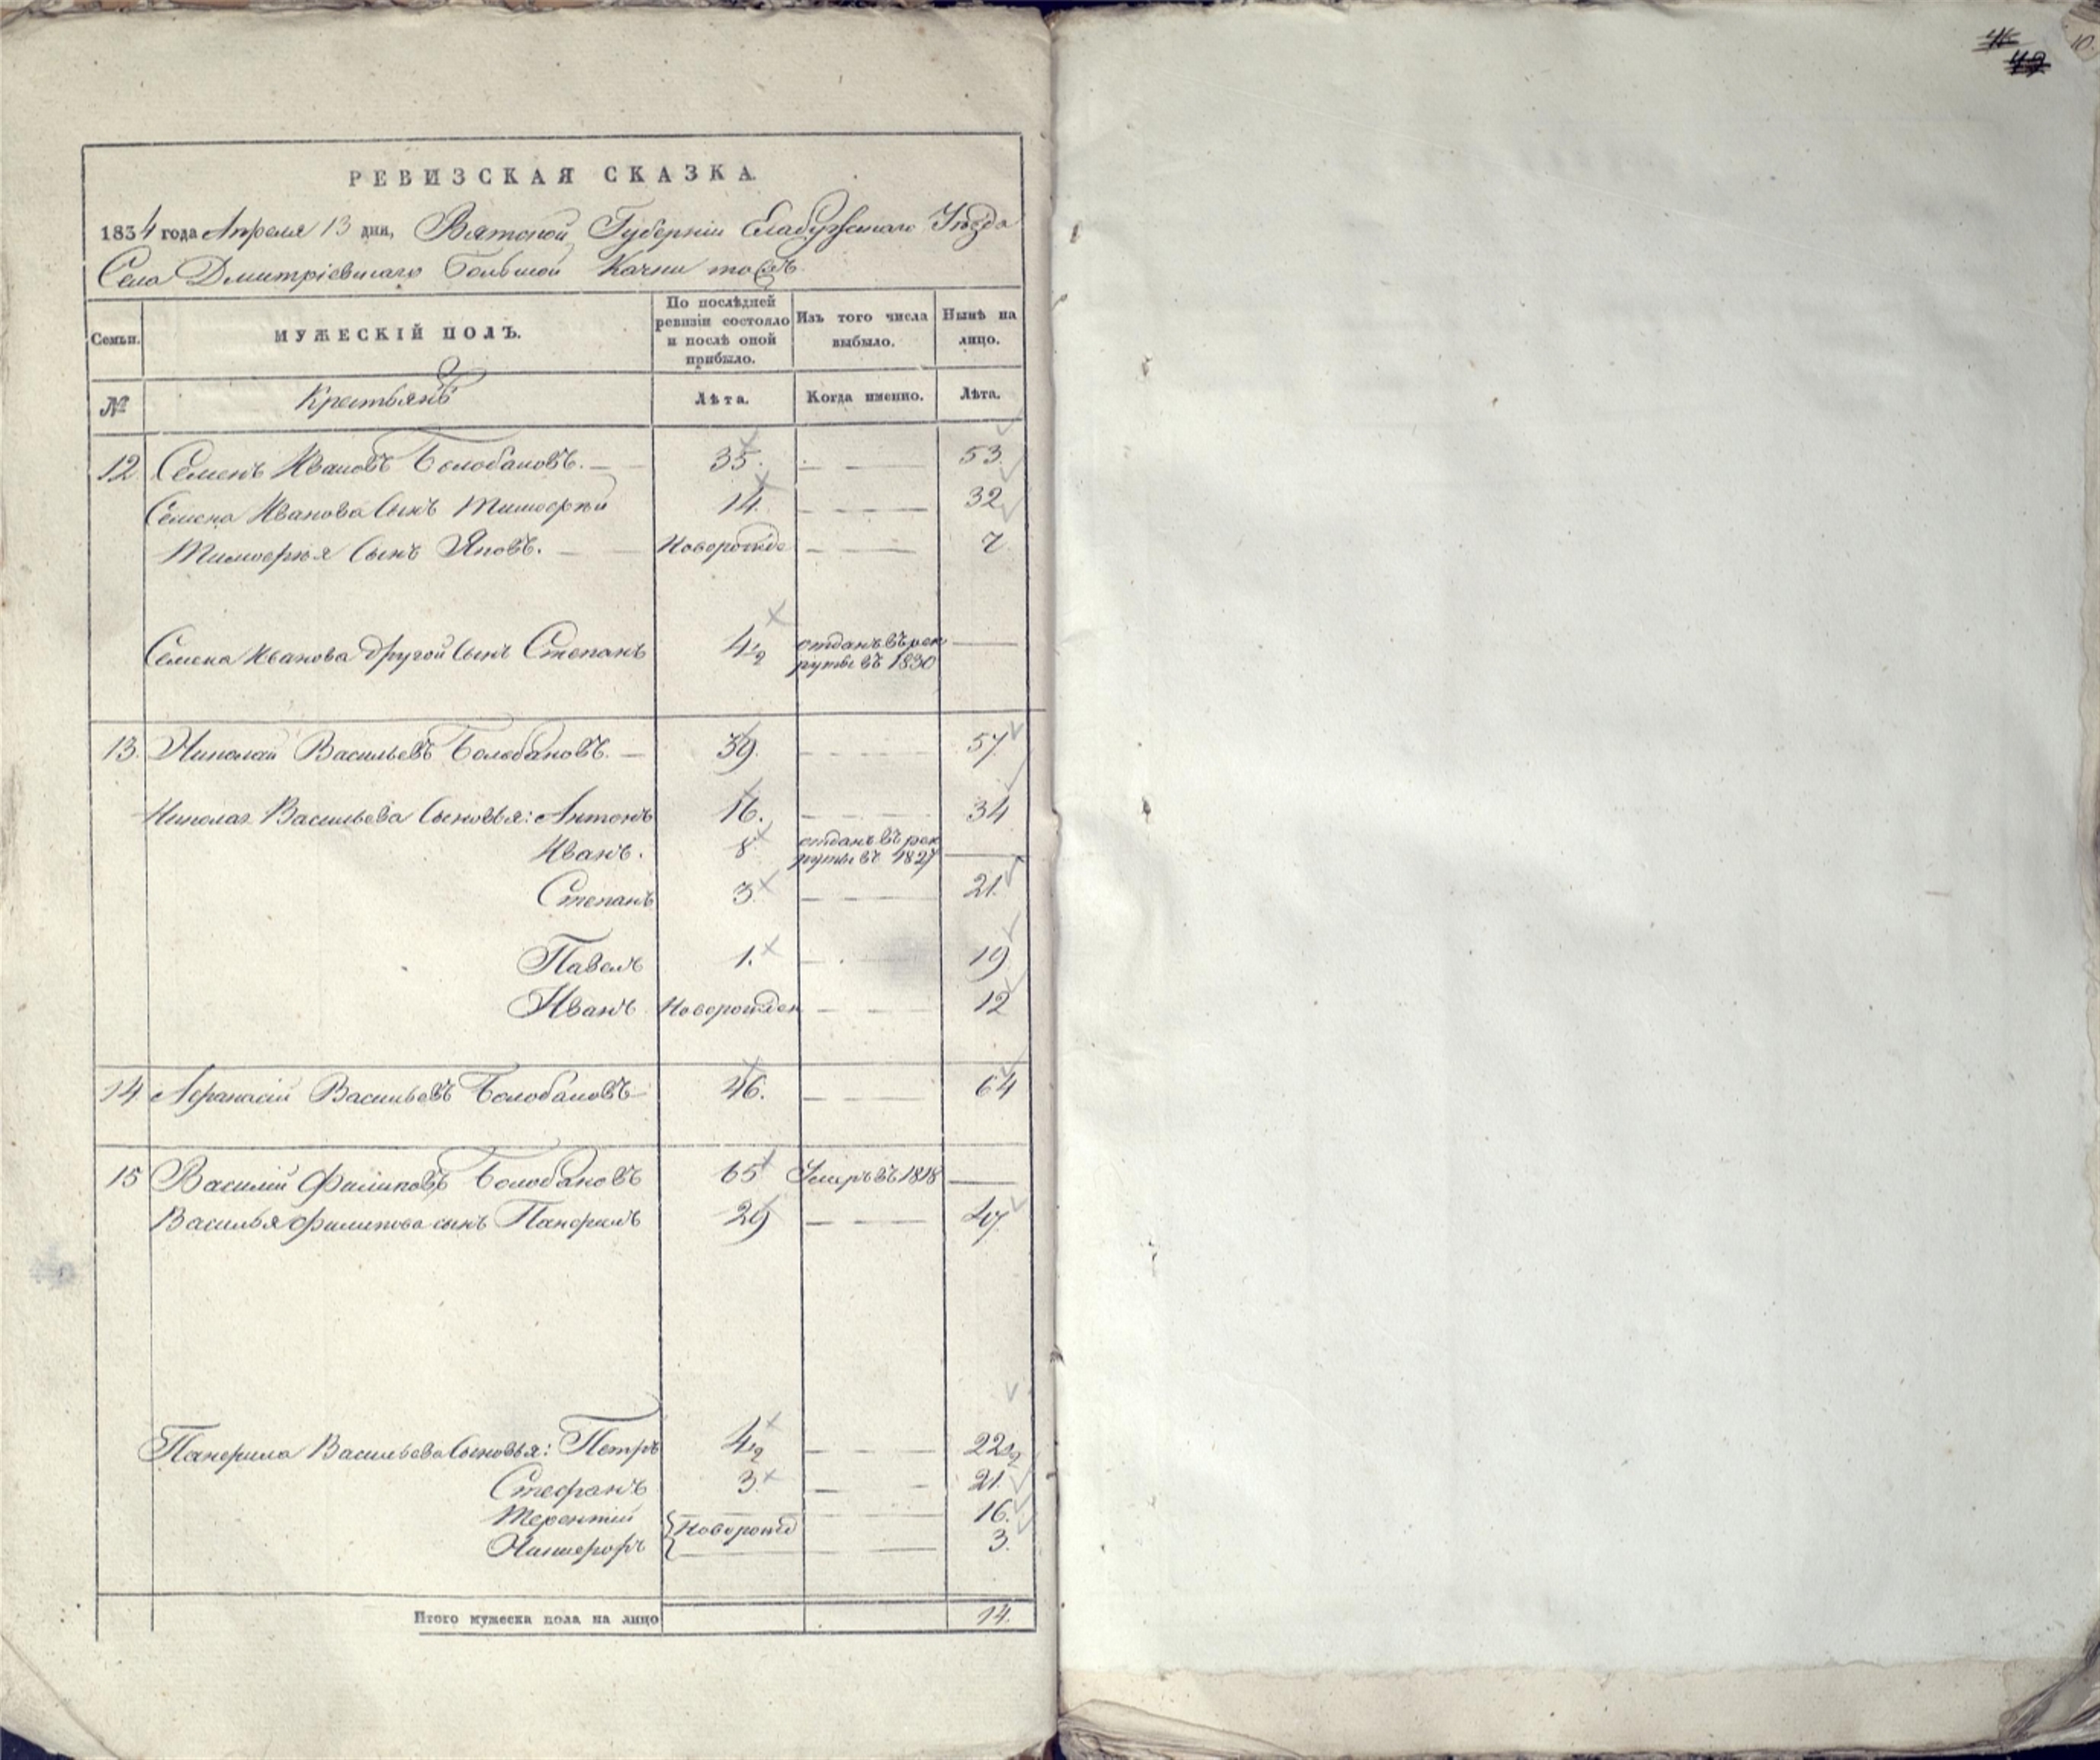 46
42
10.
РЕВИЗСКАЯ СКАЗКА.
1834 года Апреля 13 дня, Вятской Губерніи Елабужскаго Уѣзда
Села Дмитріевскаго Большой Качки тожъ
Семьи. МУЖЕСКІЙ ПОЛЪ. По послѣдней ревизіи состояло и послѣ оной прибыло. Изъ того числа выбыло. Нынѣ на лицо.
№ Крестьянъ Лѣта. Когда именно. Лѣта.
12 Семенъ Ивановъ Болобановъ. 35. 53.
Семена Иванова сынъ Тимофѣй 14. 32
Тимофѣя сынъ Яковъ. Новорожде 7
Семена Иванова другой сынъ Степанъ 4½ отданъ въ рекруты въ 1830
13. Николай Васильевъ Болобановъ. 39. 57
Николая Васильева сыновья: Антонъ 16. 34
Иванъ. 8 отданъ въ рекруты въ 1827
Степанъ 3. 21.
Павелъ 1. 19
Иванъ Новорожден 12
14 Афанасій Васильевъ Болобановъ 46. 64
15 Василій Филиповъ Болобановъ 65 Умеръ въ 1818
Василья Филипова сынъ Панфилъ 29 47
Панфила Васильева сыновья: Петръ 4½ 22½
Стефанъ 3. 21.
Терентій Новорожд 16.
Никифоръ 3.
Итого мужеска пола на лицо 14.